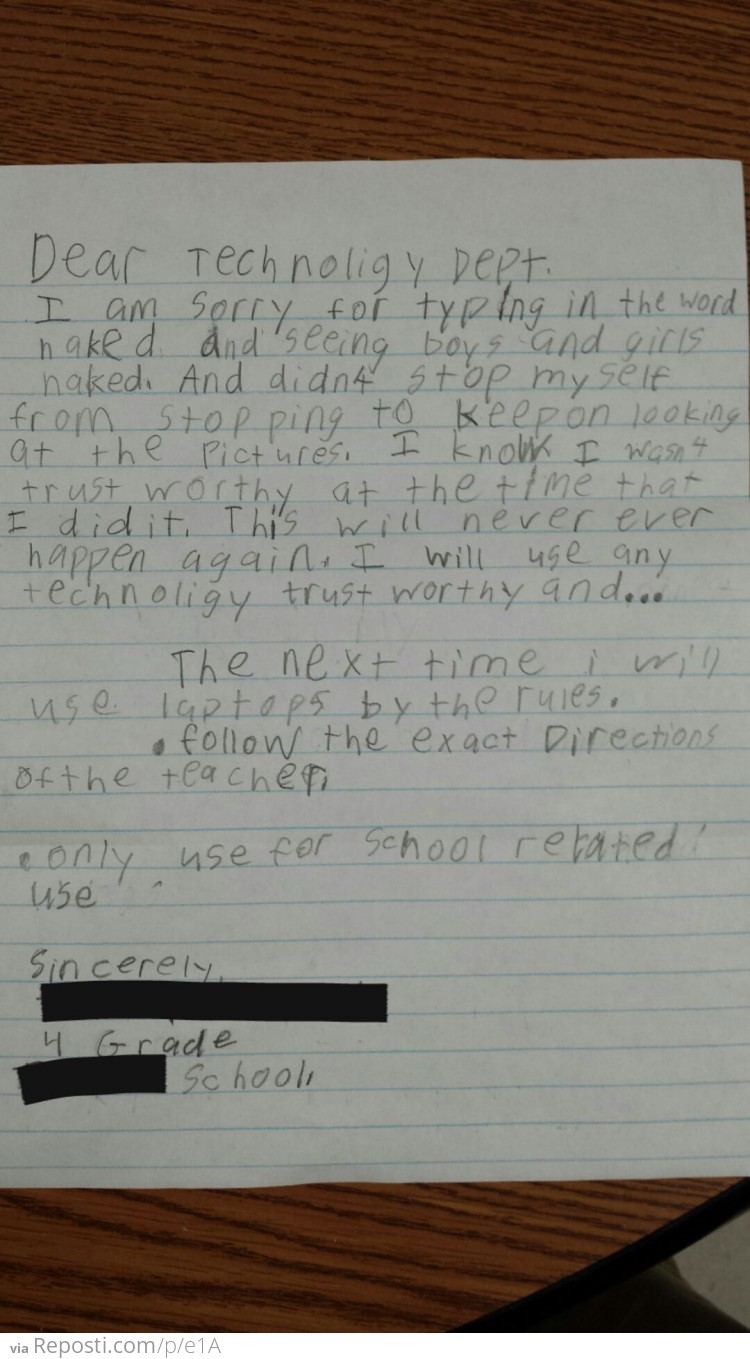 Dear Technoligy Dept.
I am sorry for typing in the word
naked and seeing boys and girls
naked. And didn4 stop my self
from stopping to keep on looking
at the pictures. I know I wasn4
trust worthy at the time that
I did it. This will never ever
happen again. I will use any
technoligy trust worthy and...
The next time i will
use laptops by the rules.
• follow the exact Directions
of the teacher.
• only use for school related
use
Sincerely,
4 Grade
School
via Reposti.com/p/e1A